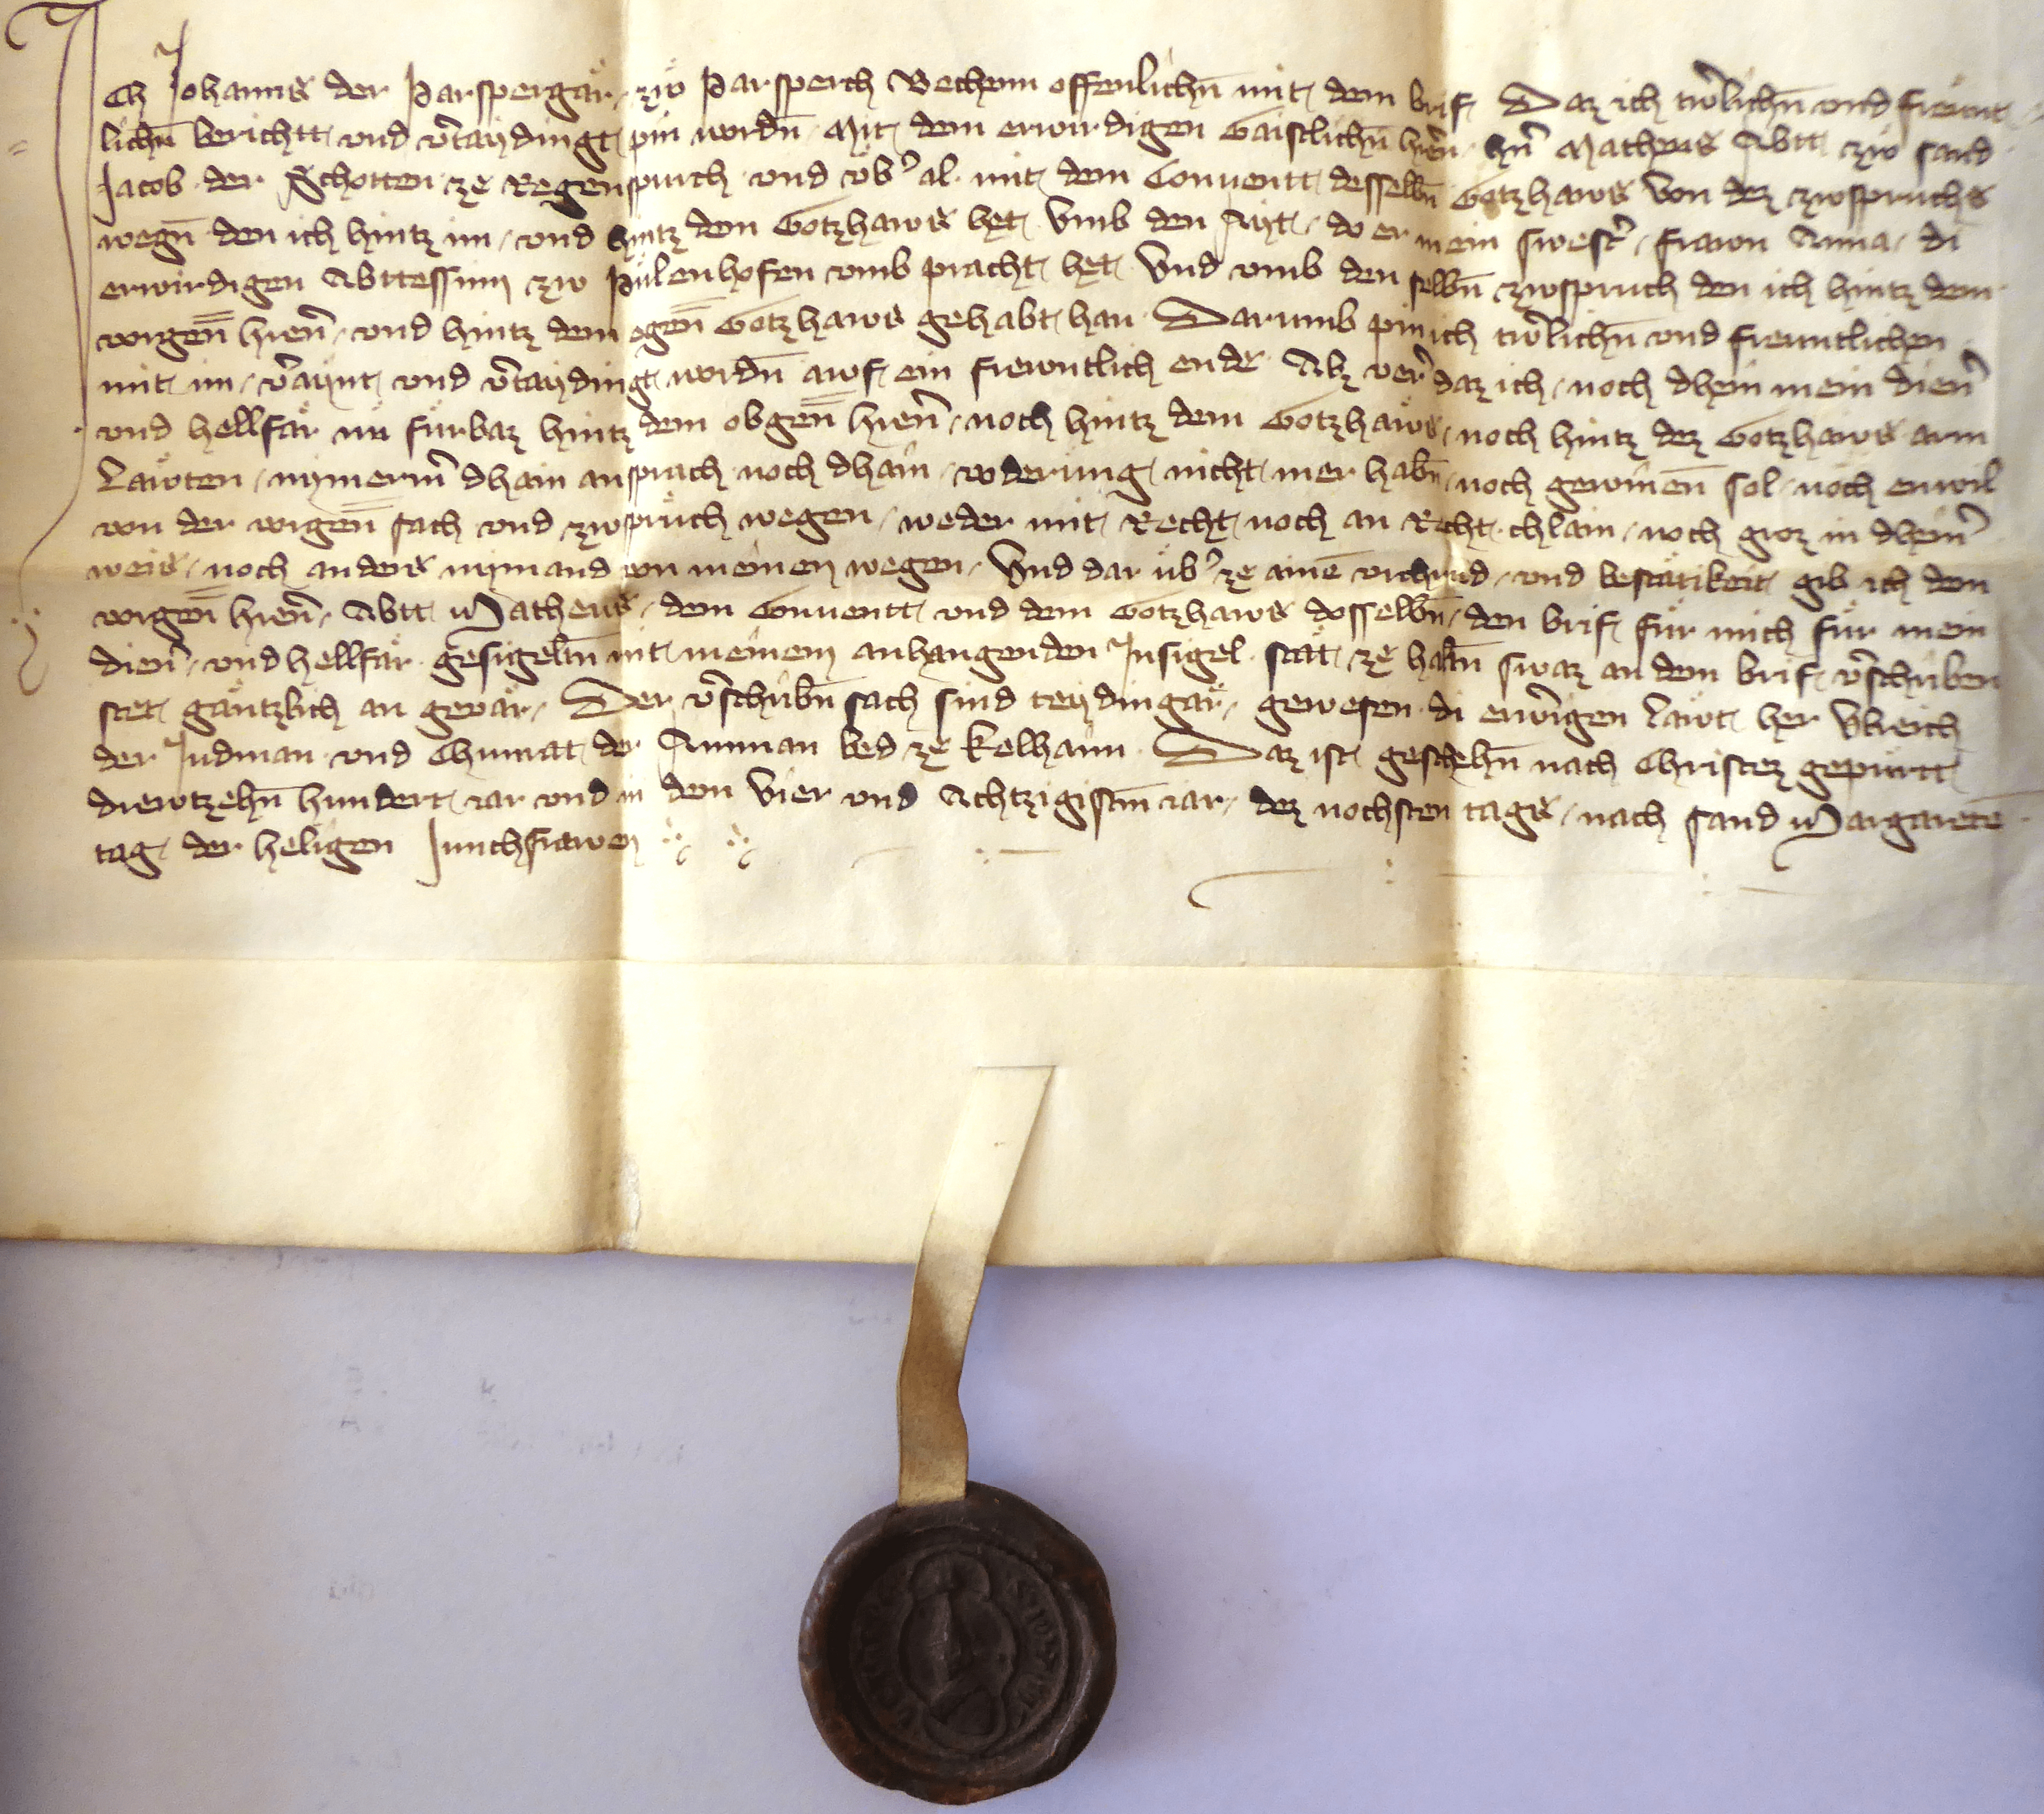 Ich Johanns der Parspergär zuͦ Parsperch Vechenn offenlichn̄ mit dem brif Daz ich tuͦlichn̄ vnd freunt
lichn̄ berichtt vnd v̄taydingt pin wordn̄ Mit dem erwirdigen Gaistlichn̄ hren̄ hn̄ Matheus Abtt zuͦ sand
Jacob der Schotten ze Regenspurch vnd vb̾al mit dem Conuentt desselbn̄ Gotzhaws Von dez zwspruchs
wegn̄ den ich hintz im vnd hintz dem Gotzhaws het Vmb den Ayt do er mein swest̾ frawn Anna di
erwirdigen Abttessinn zw Pülenhofen vmb pracht het Vnd vmb den selbn̄ zwspruch den ich hintz dem
vorigen̄ hren̄ vnd hintz dem ogen̄ Gotzhaws gehabt han Darumb pin ich tuͦlichn̄ vnd freuntlichen
mit im v̄aynt vnd v̄taydingt wordn̄ awf ein frewntlich ende Alz ver daz ich noch dhein mein dien̾
vnd hellfär nu fürbaz hintz dem obgen̄ hren̄ noch hintz dem Gotzhaws noch hintz dez Gotzhaws arm
Läwten nymerm̄ dhain ansprach noch dhain voderung nicht mer habn̄ noch gewinen̄ sol noch enwil
von der vorigen̄ sach vnd zwsprüch wegen weder mit Recht noch an Recht chlain noch groz in dhein̾
weis noch anders nymand von meinen wegen Vnd dar üb̾ ze aine vrchund vnd bestätikeit gib ich dem
vorigen̄ hren̄ Abtt Matheus dem Conuentt vnd dem Gotzhaws desselbn̄ den brif für mich für mein
dien̾ vnd hellfär gesigeltn̄ mit meinem anhangenden Insigel stät ze habn̄ swaz an dem brif v̄schriben
stet gäntzlich an geuär Der v̄schribn̄ sach sind teydingär gewesen di erw̾igen Läwt her Vlreich
der Judman vnd Chunrat der Amman bed ze Kelhaim Daz ist geschehn̄ nach Christez gepurtt
drewtzehn̄ hundert iar vnd in dem Vier vnd Achtzigistn̄ iar dez nochsten tags nach sand Margarete
tag der heligen Junchfrawen